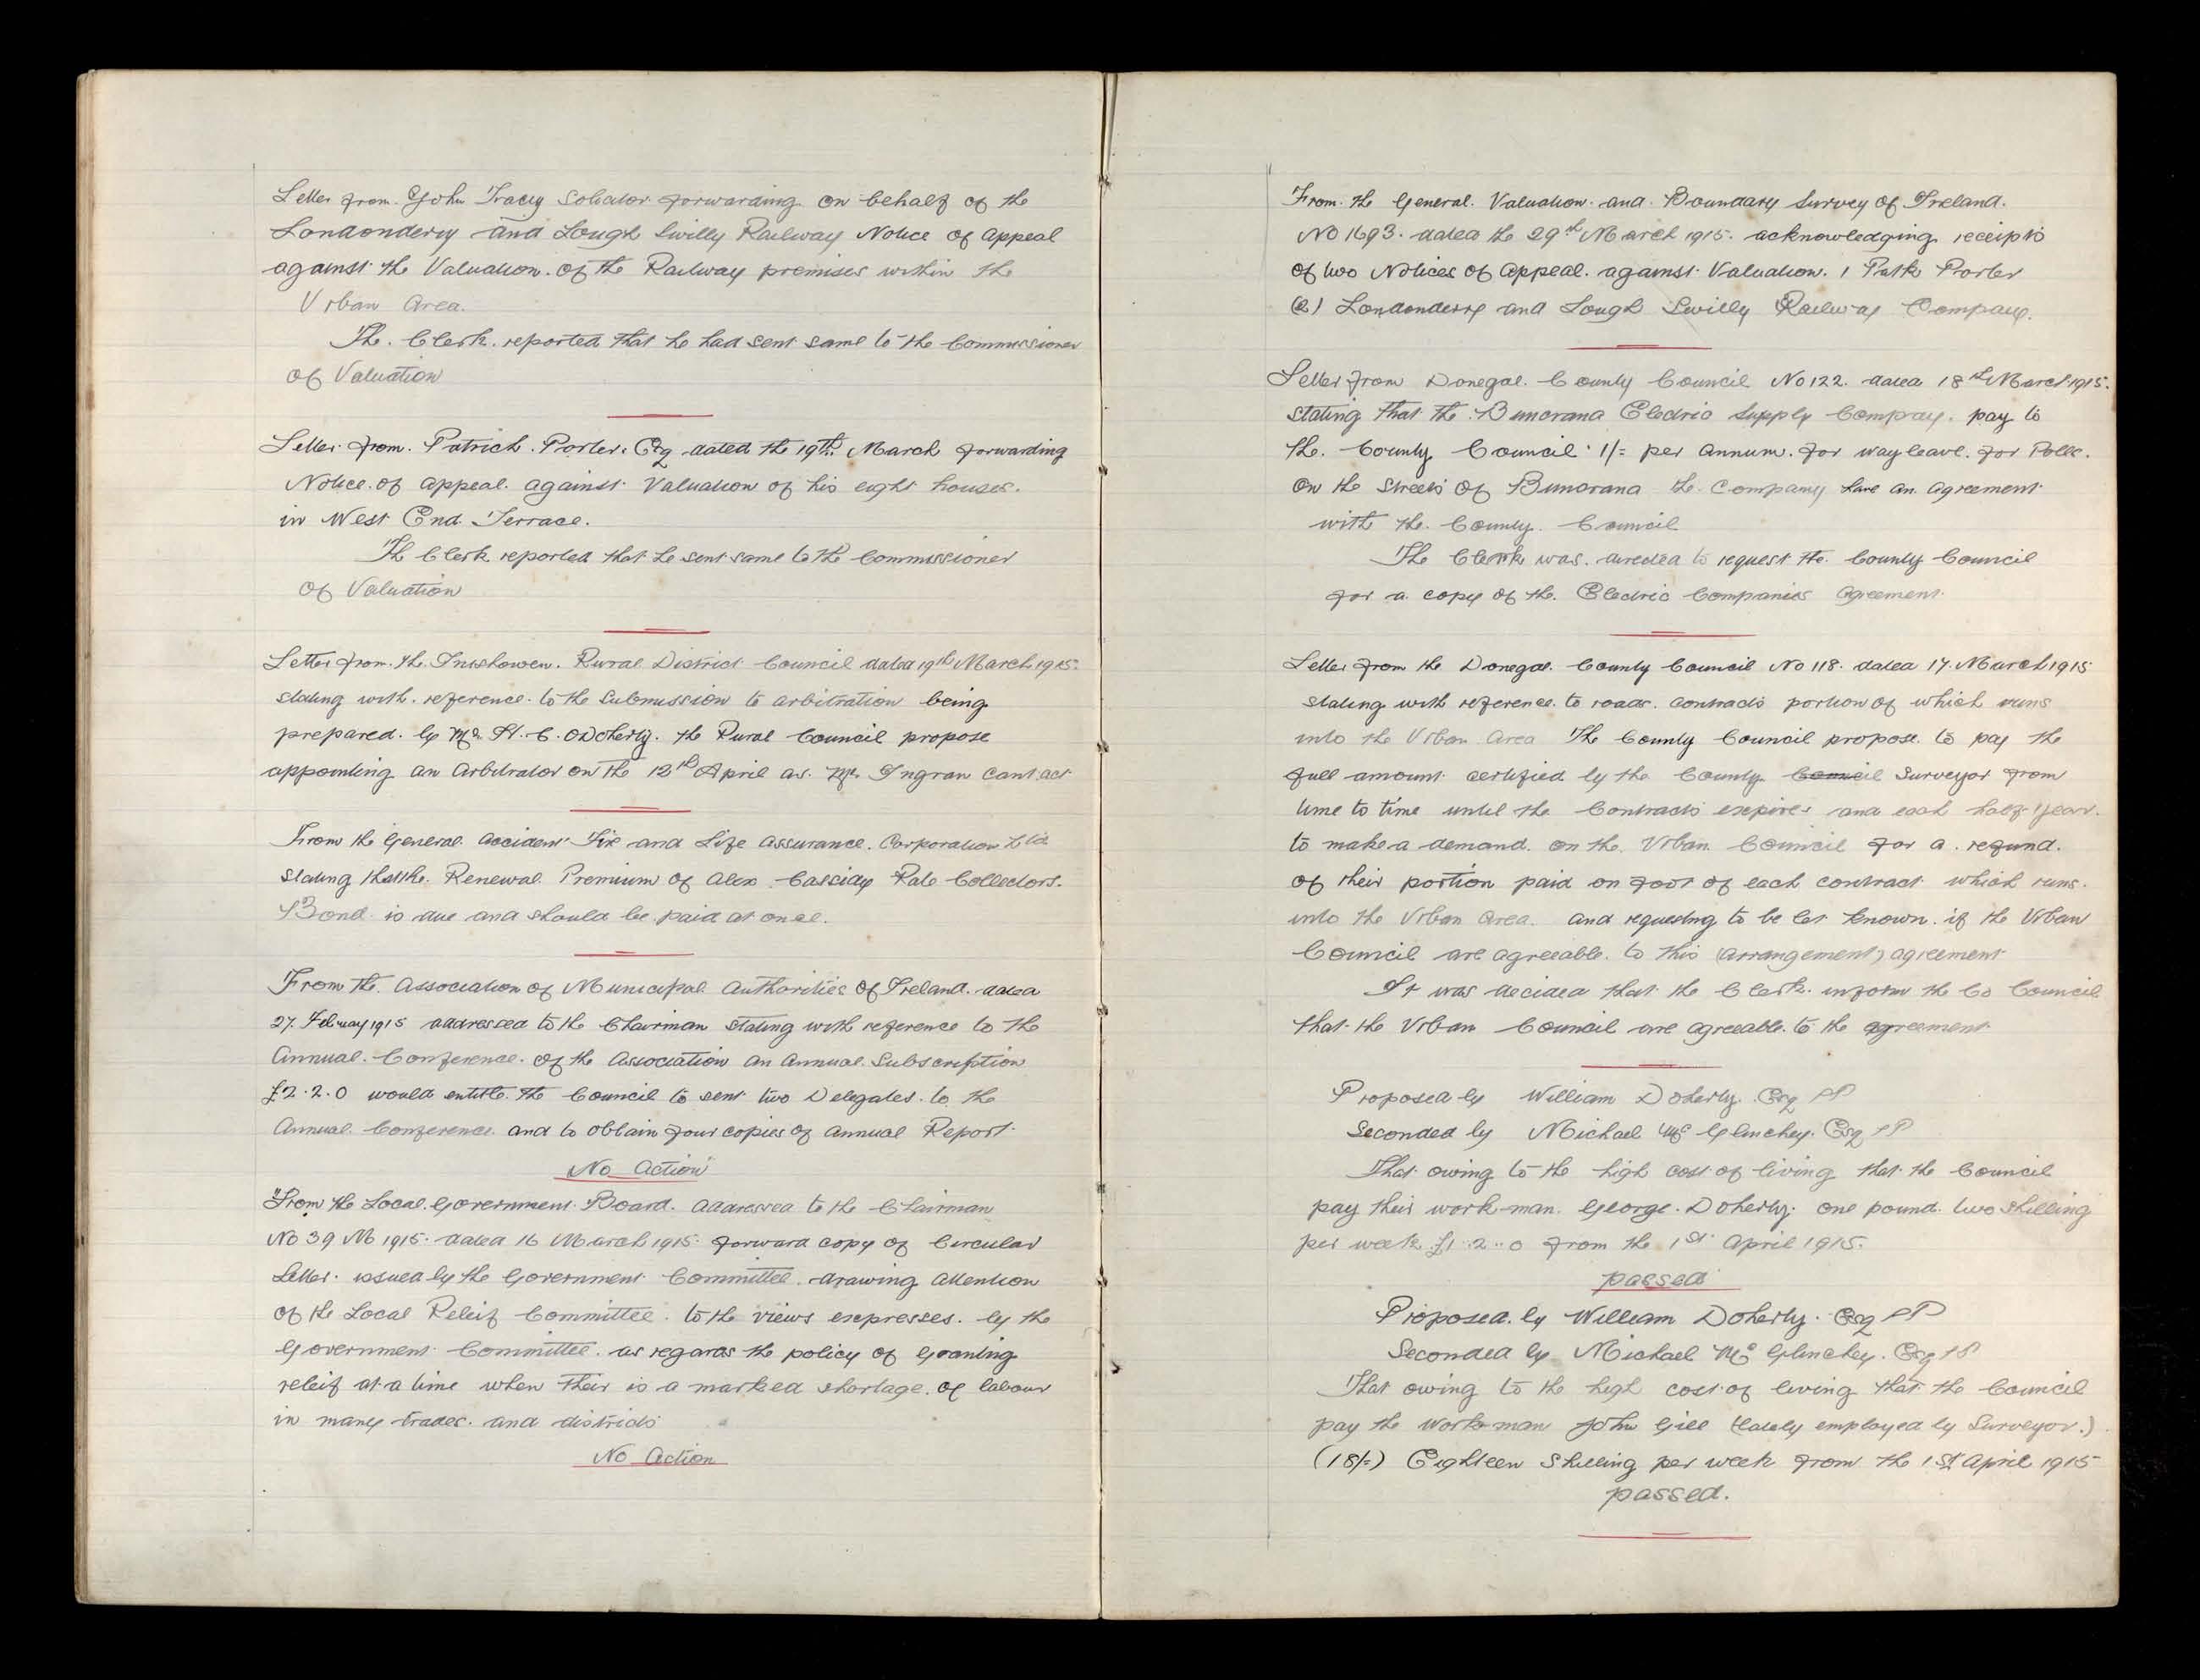 Letter from John Tracey Solicitor forwarding on behalf of the
Londonderry and Lough Swilly Railway Notice of Appeal
against the Valuation of the Railway premises within the
Urban Area.
The Clerk reported that he had sent same to the Commissioner
of Valuation
Letter from Patrick Porter Esq dated the 19th March forwarding
Notice of appeal against Valuation of his eight houses.
in West End Terrace.
The Clerk reported that he sent same to the Commissioner
of Valuation
Letter from the Inishowen Rural District Council dated 19th March 1915
stating with reference to the Submission to arbitration being
prepared by Mr H. C. O'Doherty the Rural Council propose
appointing an Arbitrator on the 12th April as Mr Ingran cant act
From the General Accident Fire and Life Assurance Corporation Ltd
stating that the Renewal Premium of Alex Cassidy Rate Collectors
Bond is due and should be paid at once.
From the Association of Municipal Authorities of Ireland dated
27 February 1915 addressed to the Chairman stating with reference to the
Annual Conference of the Association an Annual Subscription
£2.2.0 would entitle the Council to sent two Delegates to the
Annual Conference and to obtain four copies of Annual Report
No Action
From the Local Government Board addressed to the Chairman
No 39 M 1915 dated 16 March 1915 forward copy of Circular
Letter issued by the Government Committee drawing attention
of the Local Releif Committee to the views expresses by the
Government Committee as regards the policy of Graning
releif at a time when their is a marked shortage of labour
in many trades and districts
No Action
From the General Valuation and Boundary Survey of Ireland.
No 1693 dated the 29th March 1915 acknowledging receipts
of two Notices of Appeal against Valuation. 1 Patk Porter
(2) Londonderry and Lough Swilly Railway Company.
Letter from Donegal County Council No 122 dated 18th March 1915.
stating that the Buncrana Electric Supply Compay pay to
the County Council 1/= per annum for way leave for Polle.
on the Streets of Buncrana the Company have an agreement
with the County Council
The Clerk was directed to request the County Council
for a copy of the Electric Companies agreement
Letter from the Donegal County Council No 118 dated 17 March 1915
stating with reference to roads contracts portion of which runs
into the Urban Area The County Council propose to pay the
full amount certified by the County Council Surveyor from
time to time until the Contracts expires and each half year.
to make a demand on the Urban Council for a refund.
of their portion paid on foot of each contract which runs
into the Urban Area and requesting to be let known if the Urban
Council are agreeable to this (arrangement) agreement
It was decided that the Clerk inform the Co Council
that the Urban Council are agreeable to the agreement
Proposed by William Doherty Esq JP
Seconded by Michael McGlinchey Esq JP
That owing to the high cost of living that the Council
pay their work-man George Doherty one pound two shilling
per week £1.2..0 from the 1st April 1915.
passed
Proposed by William Doherty Esq JP
Seconded by Michael McGlinchey Esq JP
That owing to the high cost of living that the Council
pay the workman John Gill (lately employed by Surveyor.)
(18/=) Eighteen shilling per week from the 1st April 1915
passed.